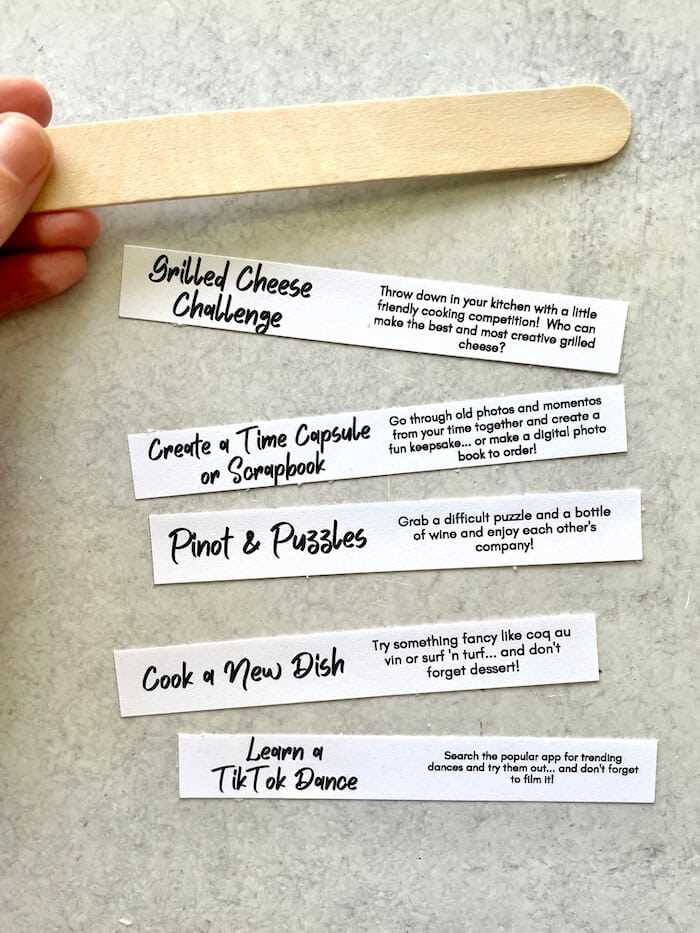 Grilled Cheese
Challenge
Throw down in your kitchen with a little
friendly cooking competition! Who can
make the best and most creative grilled
cheese?
Create a Time Capsule
or Scrapbook
Go through old photos and momentos
from your time together and create a
fun keepsake... or make a digital photo
book to order!
Pinot & Puzzles
Grab a difficult puzzle and a bottle
of wine and enjoy each other's
company!
Cook a New Dish
Try something fancy like coq au
vin or surf 'n turf... and don't
forget dessert!
Learn a
TikTok Dance
Search the popular app for trending
dances and try them out... and don't forget
to film it!